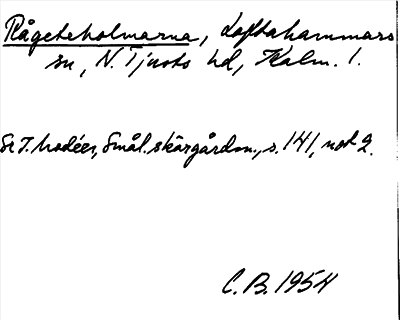 Rågeteholmarna, Loftahammars
sn, N. Tjusts hd, Kalm. l.
Se T. Modéer, Smål. skärgården, s. 141, not 2.
C. B. 1954